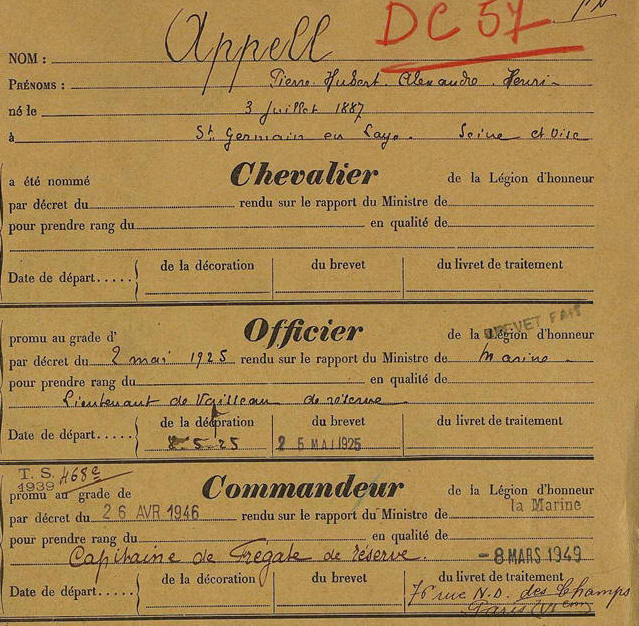 DC 57
NOM : Appell
PRÉNOMS : Pierre Hubert Alexandre Henri
né le 3 Juillet 1887
à St Germain en Laye. Seine et Oise
a été nommé Chevalier de la Légion d'honneur
par décret du rendu sur le rapport du Ministre de
pour prendre rang du en qualité de
Date de départ..... de la décoration du brevet du livret de traitement
BREVET FAIT
promu au grade d' Officier de la Légion d'honneur
par décret du 2 mai 1925 rendu sur le rapport du Ministre de Marine
pour prendre rang du en qualité de
Lieutenant de Vaisseau de réserve
Date de départ..... de la décoration du brevet du livret de traitement
2-5-25 25 MAI 1925
T. S. 468e
1939
promu au grade de Commandeur de la Légion d'honneur
par décret du 26 AVR 1946 rendu sur le rapport du Ministre de la Marine
pour prendre rang du en qualité de
Capitaine de Frégate de réserve. -8 MARS 1949
Date de départ..... de la décoration du brevet du livret de traitement
76 rue N.D. des Champs
Paris (VIem)